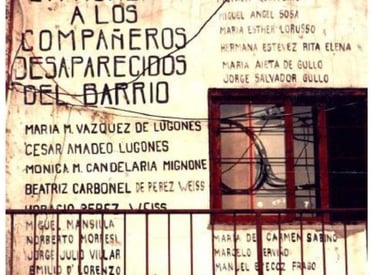 A LOS
COMPAÑEROS
DESAPARECIDOS
DEL BARRIO
MARIA M. VAZQUEZ DE LUGONES
CESAR AMADEO LUGONES
MONICA M. CANDELARIA MIGNONE
BEATRIZ CARBONEL DE PEREZ WEISS
HORACIO PEREZ WEISS
MIGUEL MANSILLA
NORBERTO MORRESI
JORGE JULIO VILLAR
EMILIO D' LORENZO
MIGUEL ANGEL SOSA
MARIA ESTHER LORUSSO
HERMANA ESTEVEZ RITA ELENA
MARIA AIETA DE GULLO
JORGE SALVADOR GULLO
MARIA DE CARMEN SABINO
MARCELO
MANUEL